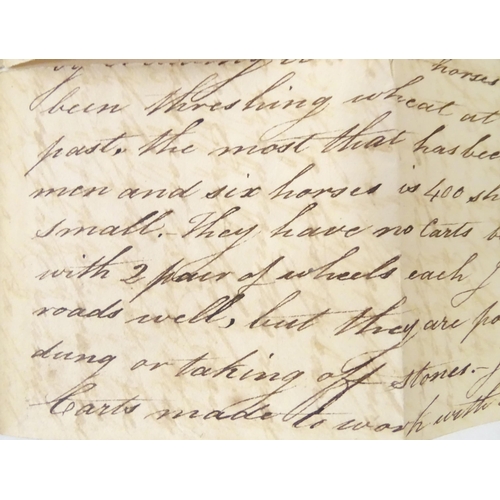 horses
been threshing wheat at
past. the most that has bee
men and six horses is 400 sh
small. - They have no Carts b
with 2 pair of wheels each
roads well, but they are po
dung or taking off stones. -
Carts made to work with